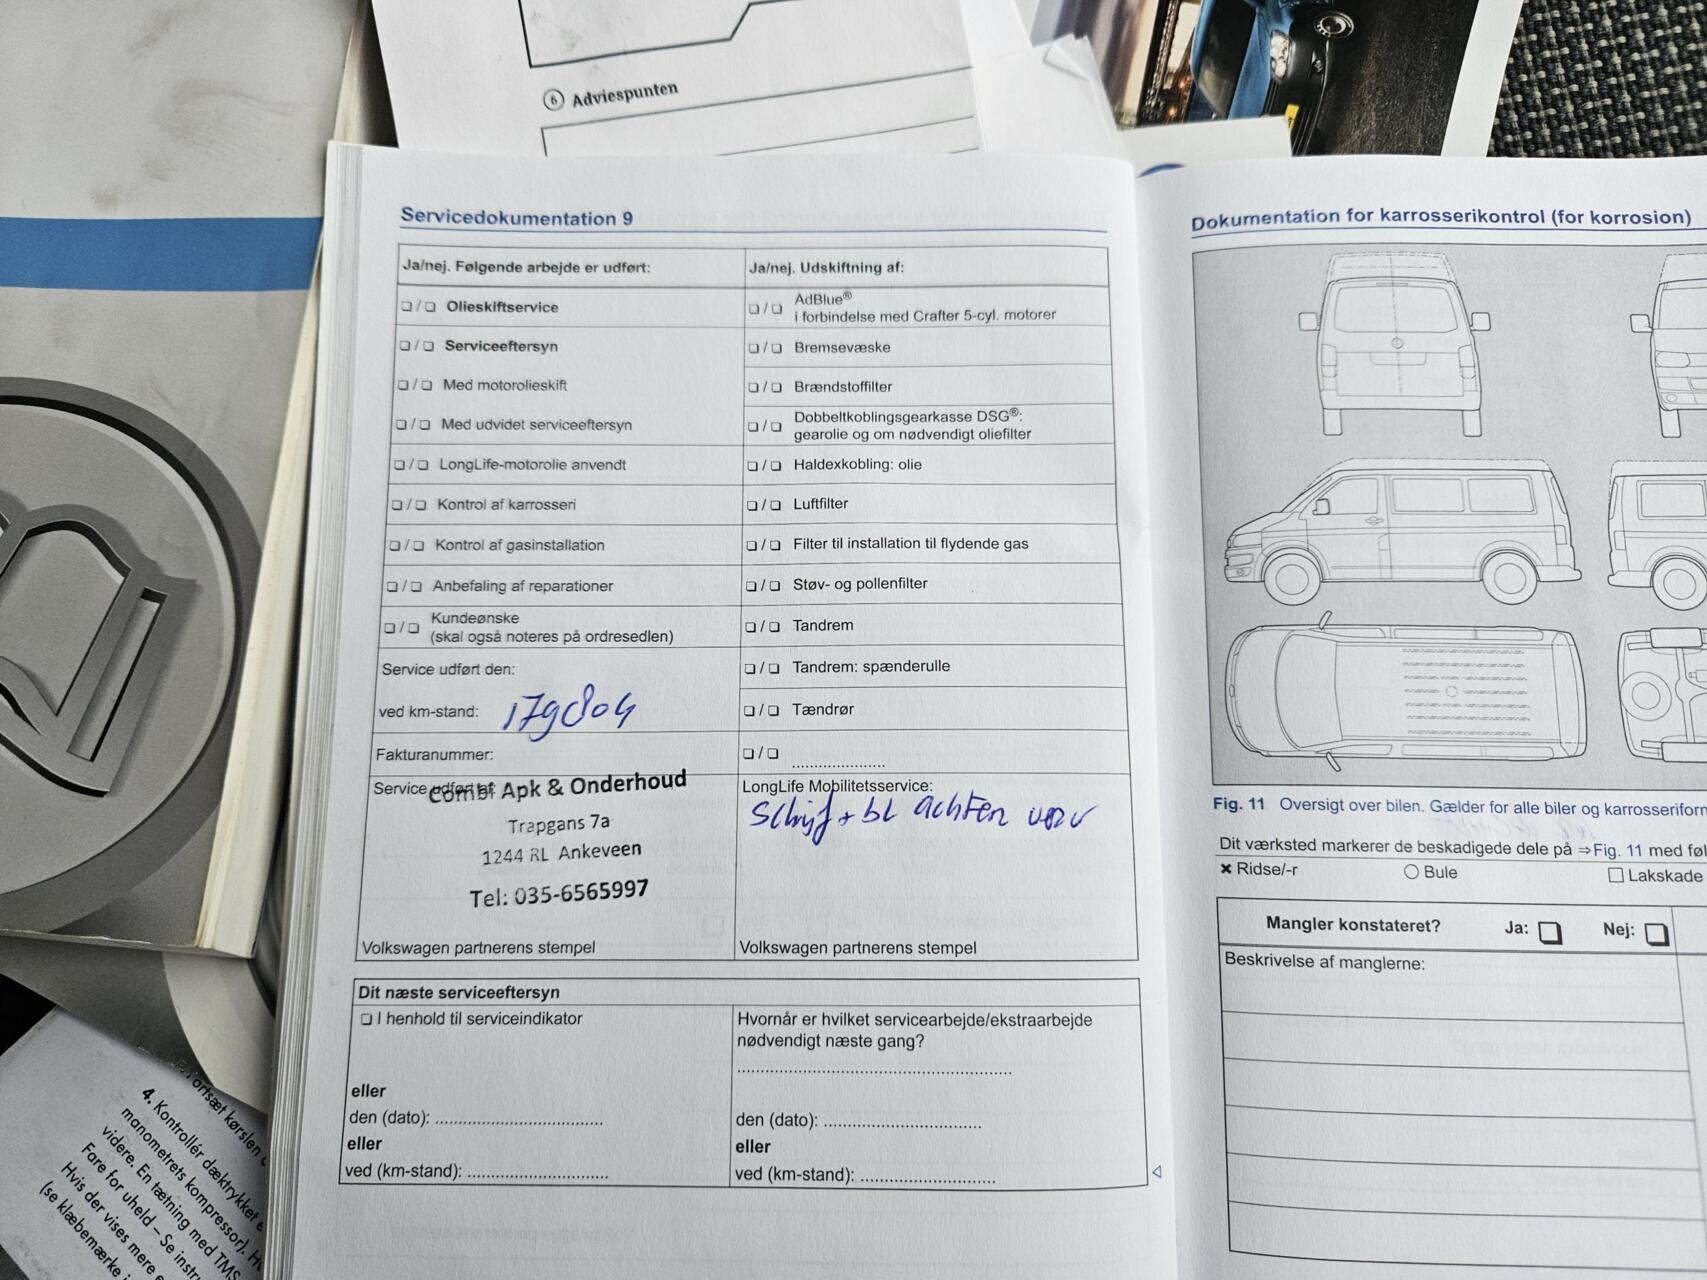 6 Adviespunten
Servicedokumentation 9
Ja/nej. Følgende arbejde er udført:
❏ / ❏ Olieskiftservice
❏ / ❏ Serviceeftersyn
❏ / ❏ Med motorolieskift
❏ / ❏ Med udvidet serviceeftersyn
❏ / ❏ LongLife-motorolie anvendt
❏ / ❏ Kontrol af karrosseri
❏ / ❏ Kontrol af gasinstallation
❏ / ❏ Anbefaling af reparationer
❏ / ❏ Kundeønske
(skal også noteres på ordresedlen)
Service udført den:
ved km-stand: 179804
Fakturanummer:
Service udført af:
Combi Apk & Onderhoud
Trapgans 7a
1244 RL Ankeveen
Tel: 035-6565997
Volkswagen partnerens stempel
Ja/nej. Udskiftning af:
❏ / ❏ AdBlue®
i forbindelse med Crafter 5-cyl. motorer
❏ / ❏ Bremsevæske
❏ / ❏ Brændstoffilter
❏ / ❏ Dobbeltkoblingsgearkasse DSG®:
gearolie og om nødvendigt oliefilter
❏ / ❏ Haldexkobling: olie
❏ / ❏ Luftfilter
❏ / ❏ Filter til installation til flydende gas
❏ / ❏ Støv- og pollenfilter
❏ / ❏ Tandrem
❏ / ❏ Tandrem: spænderulle
❏ / ❏ Tændrør
❏ / ❏ ......................
LongLife Mobilitetsservice:
Schijf + bl achter
Volkswagen partnerens stempel
Dit næste serviceeftersyn
❏ I henhold til serviceindikator
eller
den (dato): ........................................
eller
ved (km-stand): .................................
Hvornår er hvilket servicearbejde/ekstraarbejde
nødvendigt næste gang?
.................................................................
den (dato): ......................................
eller
ved (km-stand): ................................
Dokumentation for karrosserikontrol (for korrosion)
Fig. 11 Oversigt over bilen. Gælder for alle biler og karrosseriforn
Dit værksted markerer de beskadigede dele på ⇒Fig. 11 med føl
✖ Ridse/-r ○ Bule □ Lakskade
Mangler konstateret? Ja: ❏ Nej: ❏
Beskrivelse af manglerne:
ortsæt kørslen
4. Kontrollér dæktrykket
manometrets kompressor).
videre. En tætning med TMS
Fare for uheld – Se instr
Hvis der vises mere
(se klæbemærke